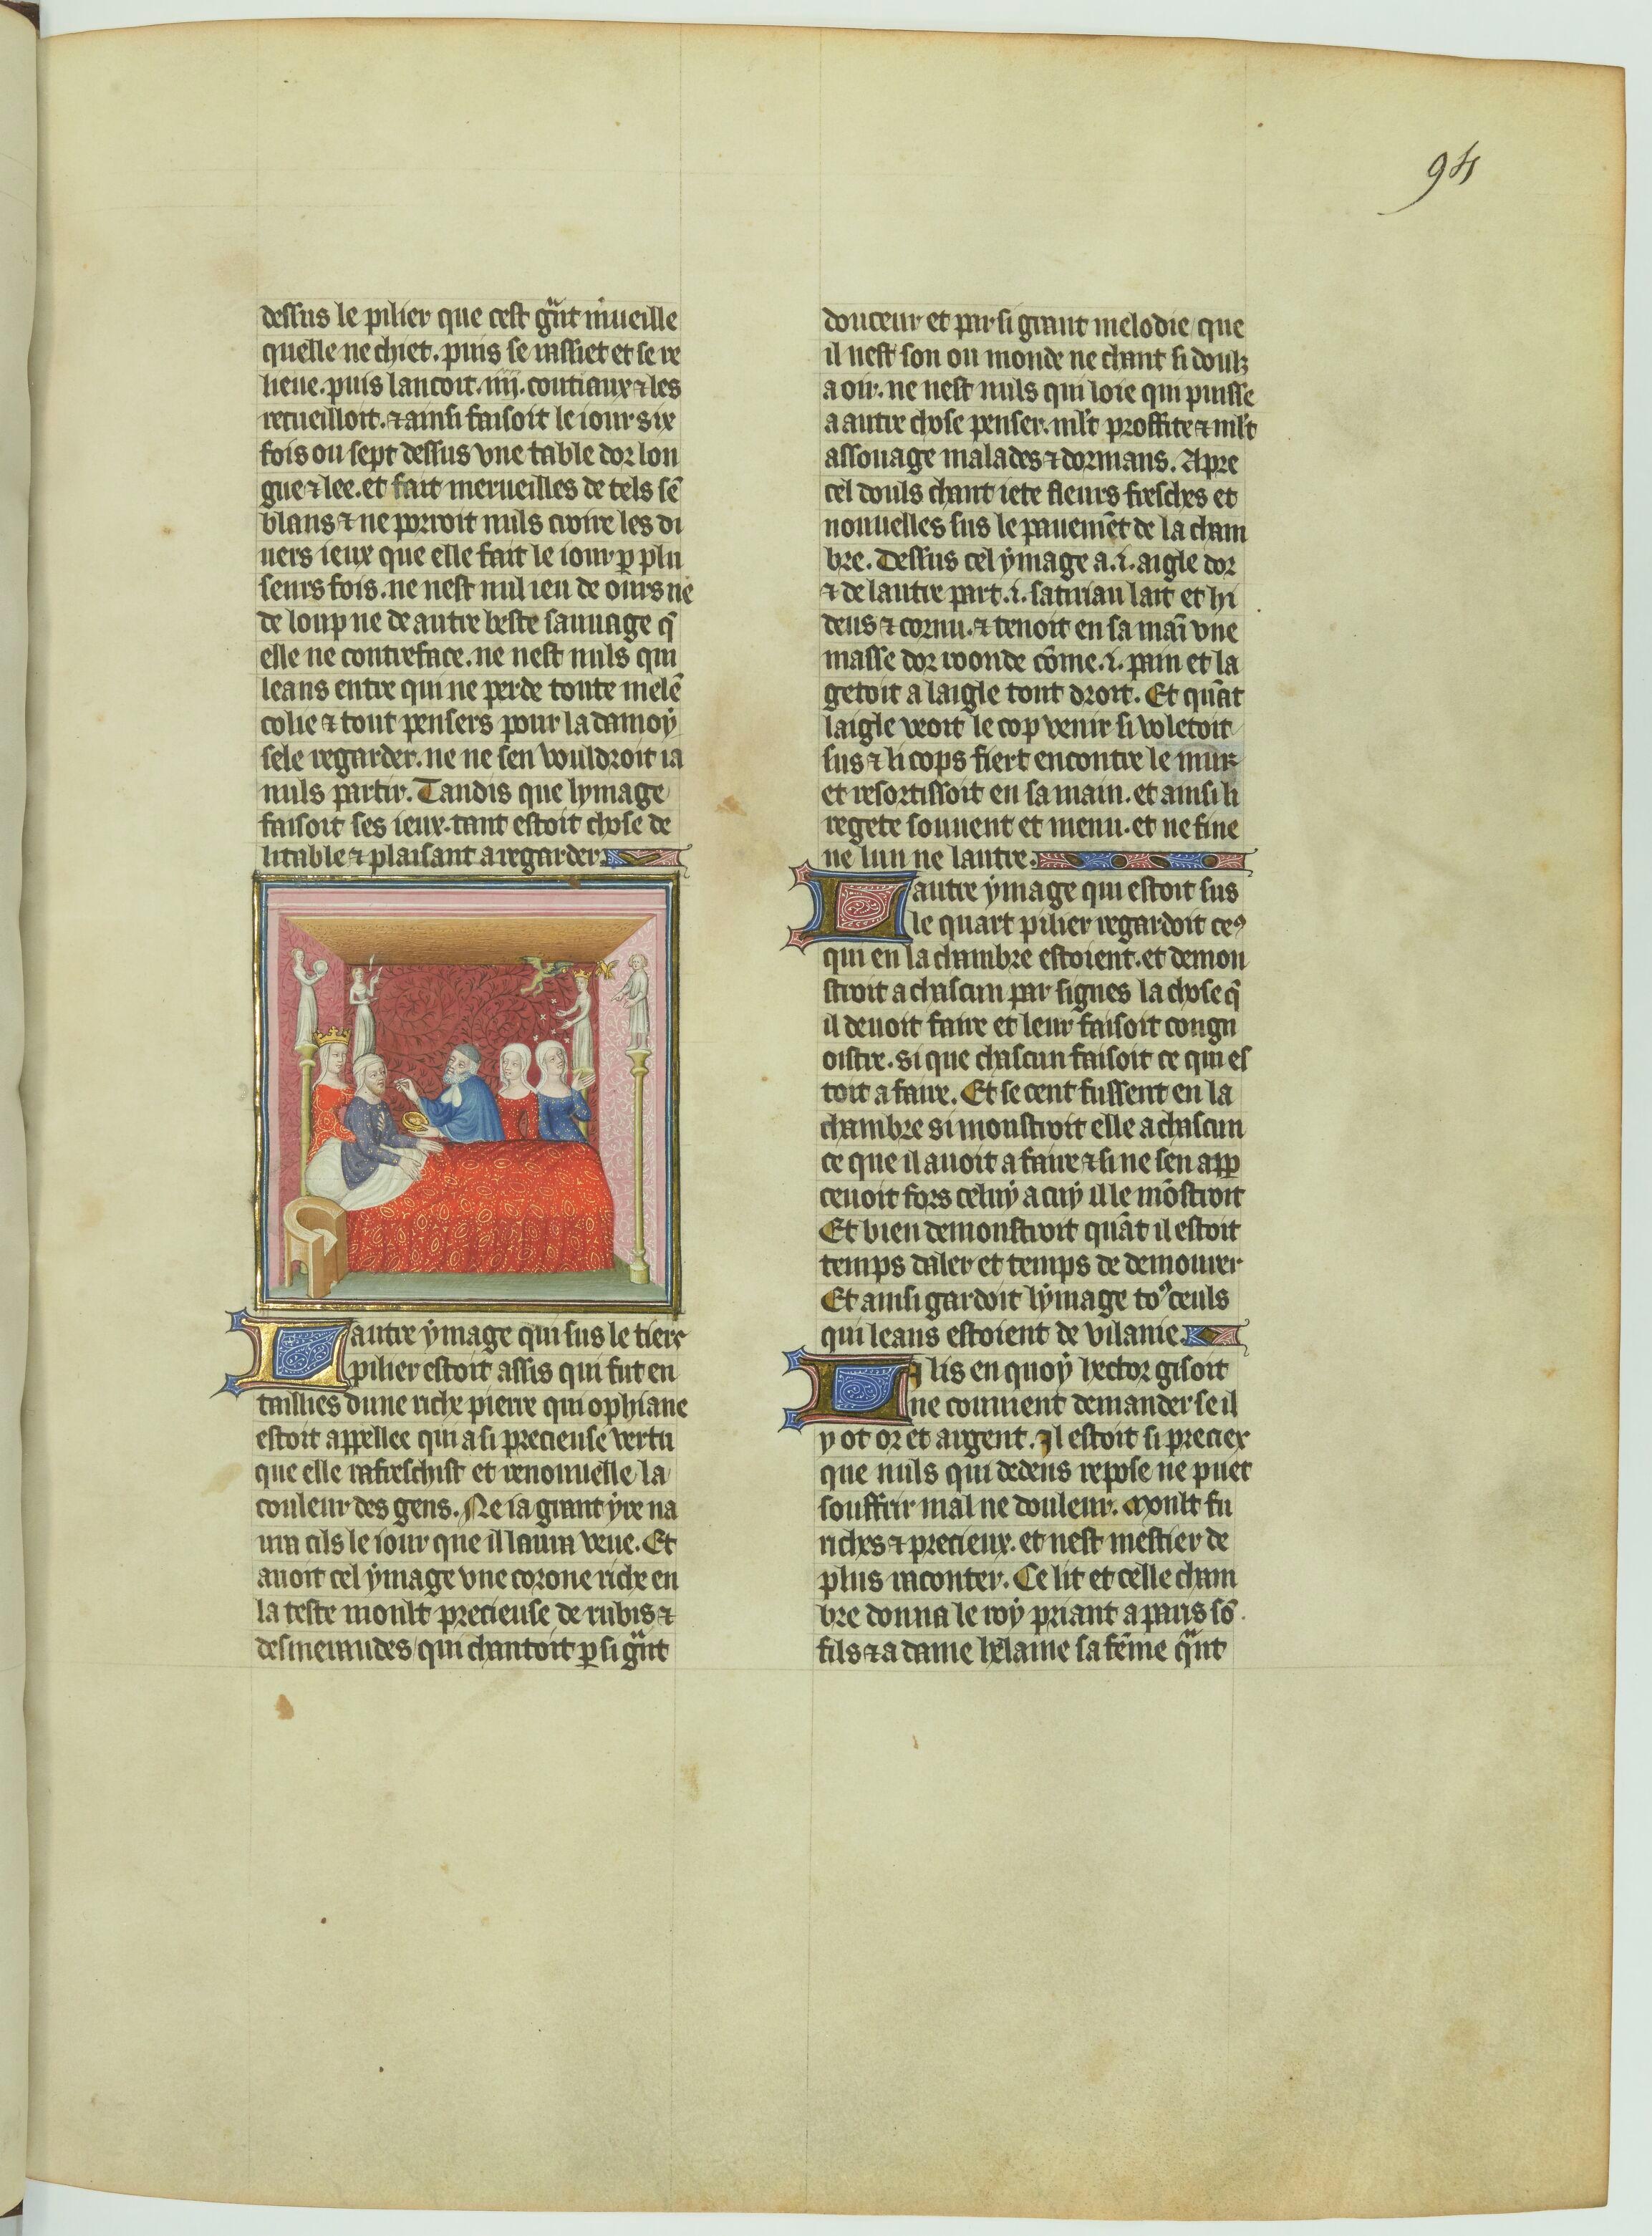 94
dessus le pilier que cest gñt mueille
quelle ne chiet. puis se rassiet et se re
lieue. puis lancoit .iiii. coutiaux ⁊ les
recueilloit. ⁊ ainsi faisoit le iour six
fois ou sept dessus vne table dor lon
gue ⁊ lee. et fait merueilles de tels sẽ
blans ⁊ ne porroit nuls croire les di
uers ieux que elle fait le iour ꝑ plu
seurs fois. ne nest nul ieu de ours ne
de loup ne de autre beste sauuage q̃
elle ne contreface. ne nest nuls qui
leans entre qui ne perde toute melẽ
colie ⁊ tout pensers pour la damoy
sele regarder. ne ne sen vouldroit ia
nuls partir. Tandis que lymage
faisoit ses ieux. tant estoit chose de
litable ⁊ plaisant a regarder.
Lautre ymage qui sus le tiers
pilier estoit assis qui fut en
taillies dune riche pierre qui ophiane
estoit appellee qui a si precieuse vertu
que elle rafreschist et renouuelle la
couleur des gens. Ne ia grant yre na
ura cils le iour que il laura veue. Et
auoit cel ymage vne corone riche en
la teste moult precieuse de rubis ⁊
desmeraudes / qui chantoit ꝑ si gñt
douceur et par si grant melodie / que
il nest son ou monde ne chant si doulz
a oir. ne nest nuls qui loie qui puisse
a autre chose penser. mlt proffite ⁊ mlt
assouage malades ⁊ dormans. Apre
cel douls chant iete fleurs fresches et
nouuelles sus le pauemẽt de la cham
bre. Dessus cel ymage a .i. aigle dor
⁊ de lautre part .i. satiriau lait et hi
deus ⁊ cornu. ⁊ tenoit en sa maĩ vne
masse dor roonde cõme .i. pain et la
getoit a laigle tout droit. Et quãt
laigle veoit le cop venir si voletoit
sus ⁊ li cops fiert encontre le mur
et resortissoit en sa main. et ainsi li
regete souuent et menu. et ne fine
ne lun ne lautre.
Lautre ymage qui estoit sus
le quart pilier regardoit ceꝰ
qui en la chambre estoient. et demon
stroit a chascun par signes la chose q̃
il deuoit faire et leur faisoit congn
oistre. si que chascun faisoit ce qui es
toit a faire. Et se cent fussent en la
chambre si monstroit elle a chascun
ce que il auoit a faire ⁊ si ne sen apꝑ
ceuoit fors celuy a cuy il le mõstroit
Et bien demonstroit quãt il estoit
temps daler et temps de demourer
Et ainsi gardoit lymage toꝰ ceuls
qui leans estoient de vilanie.
Li lis en quoy hector gisoit
ne conuient demander se il
y ot or et argent. Il estoit si preciex
que nuls qui dedens repose ne puet
souffrir mal ne douleur. Moult fu
riches ⁊ precieux. et nest mestier de
plus raconter. Ce lit et celle cham
bre donna le roy priant a paris sõ
fils ⁊ a dame helaine sa fẽme qñt